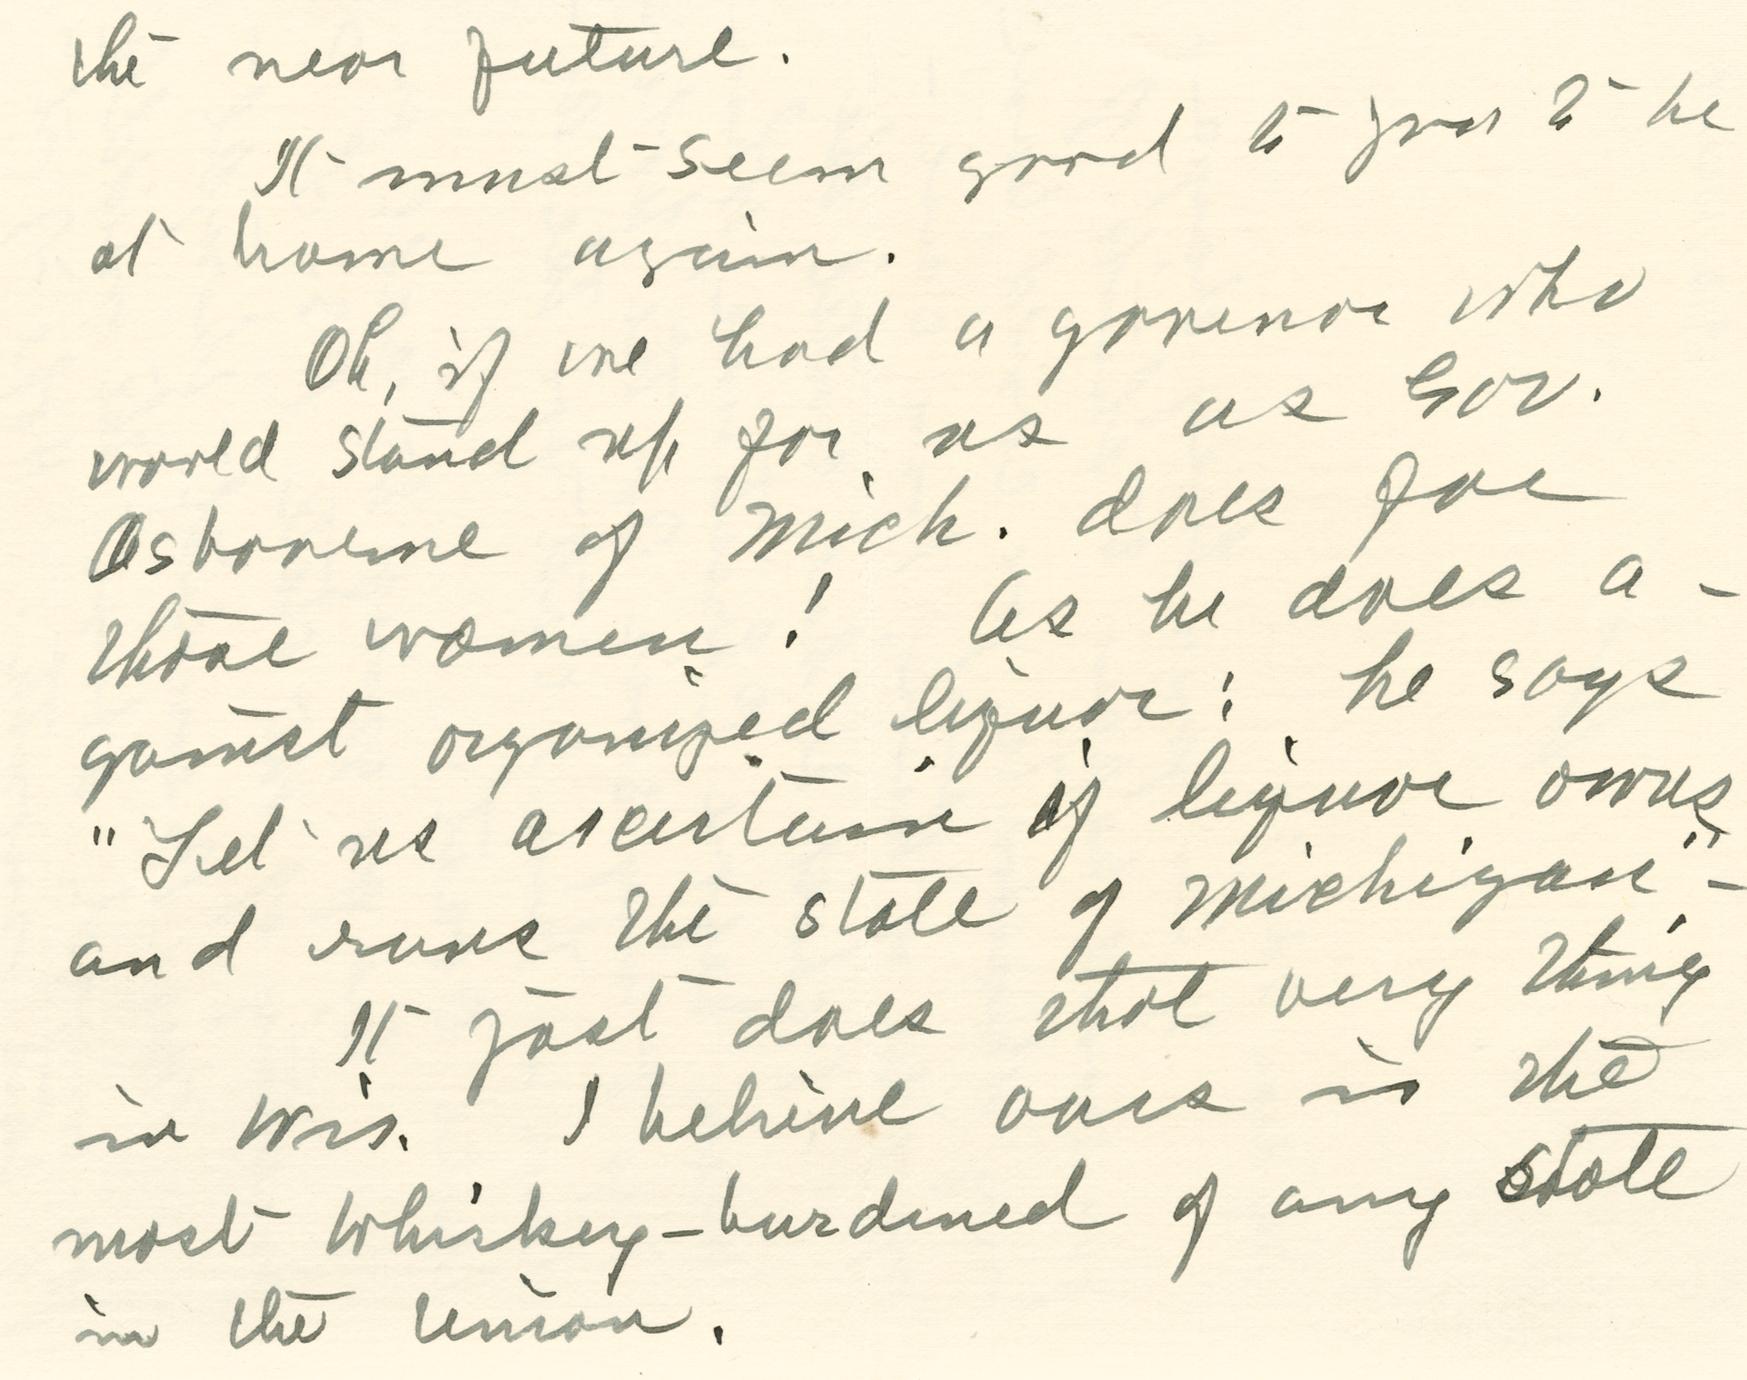 the near future.
It must seem good to you to be
at home again.
Oh, if we had a governor who
would stand up for us as Gov.
Osbourne of Mich. does for
those women! As he does a-
gainst organized liquor: he says
"Let us ascertain if liquor owns
and runs the state of Michigan" -
It just does that very thing
in Wis. I believe ours is the
most whiskey-burdened of any state
in the union.